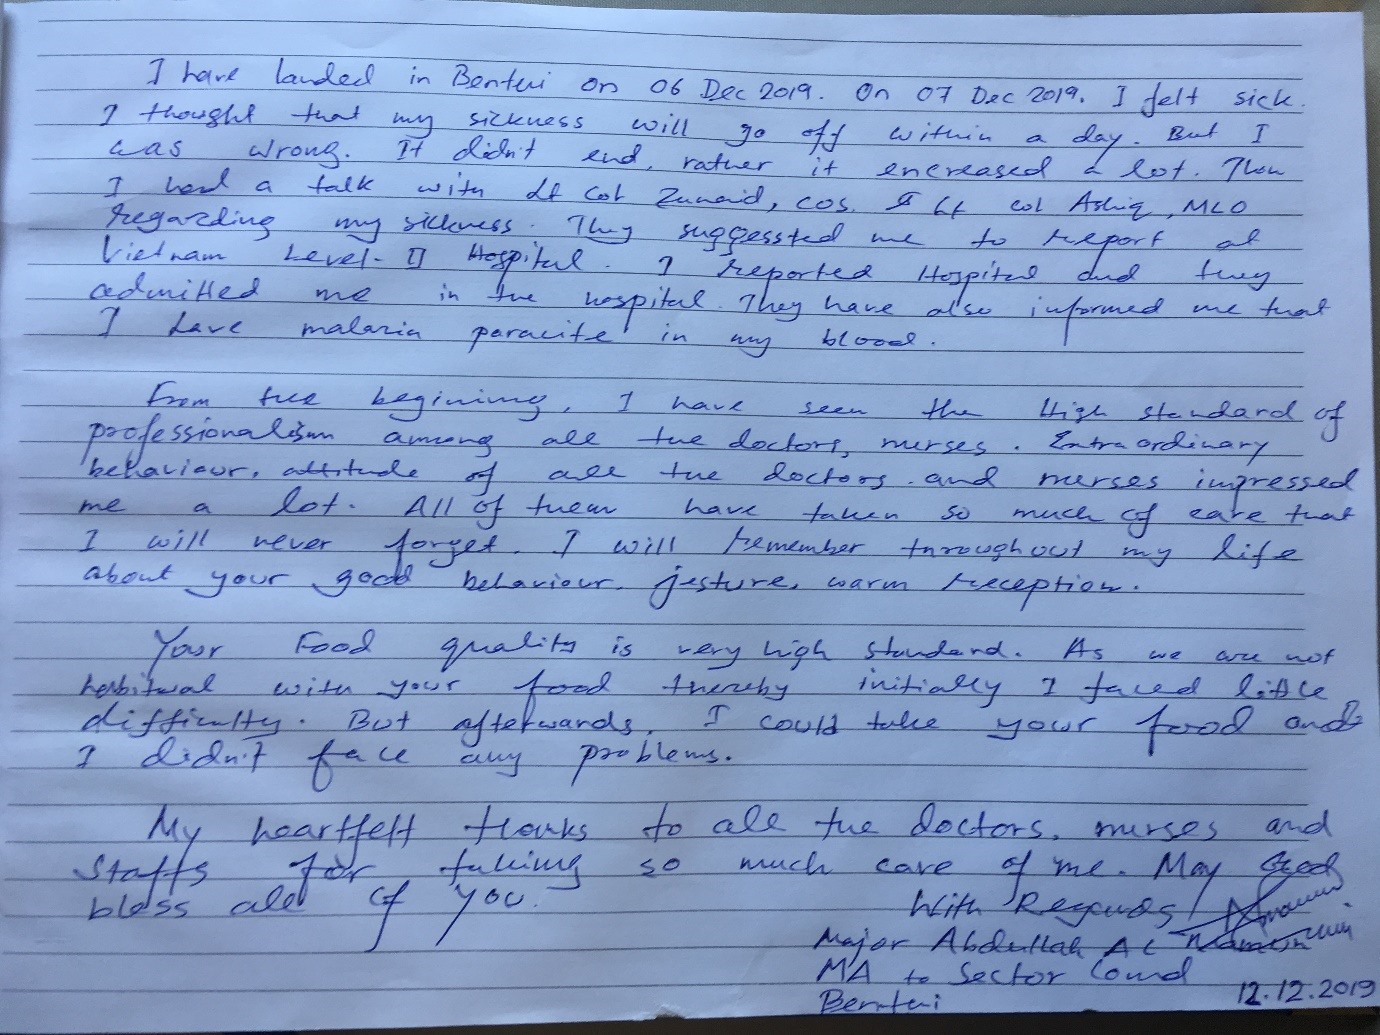 I have landed in Bentui on 06 Dec 2019. On 07 Dec 2019. I felt sick.
I thought that my sickness will go off within a day. But I
was wrong. It didn't end, rather it encreased a lot. Then
I had a talk with Lt Col Zunaid, COS. & Lt col Ashiq, MLO
regarding my sickness. They suggessted me to report at
Vietnam Level-II Hospital. I reported Hospital and they
admitted me in the hospital. They have also informed me that
I have malaria paracite in my blood.
From the begining, I have seen the High standard of
professionalism among all the doctors, nurses. Extraordinary
behaviour, attitude of all the doctors and nurses impressed
me a lot. All of them have taken so much of care that
I will never forget. I will remember throughout my life
about your good behaviour, jesture, warm reception.
Your Food quality is very high standard. As we are not
habitual with your food thereby initially I faced little
difficulty. But afterwards, I could take your food and
I didn't face any problems.
My heartfelt thanks to all the doctors, nurses and
Staffs for taking so much care of me. May God
bless all of you.
With Regards
Major Abdullah Al Mamun
MA to Sector Comd
Bentui
12.12.2019